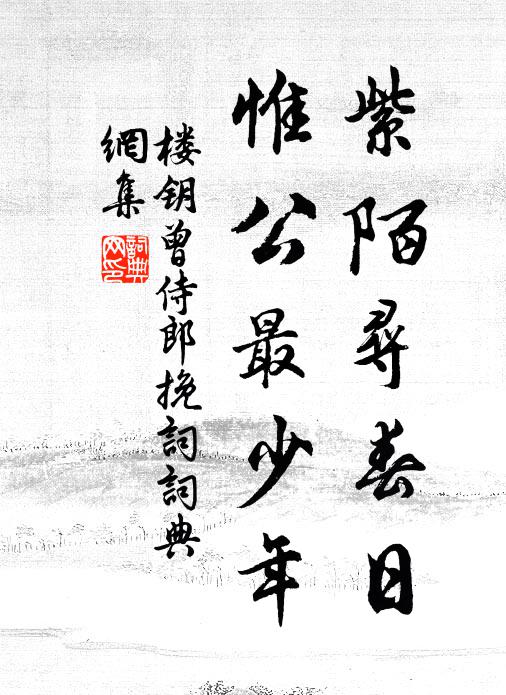 紫陌尋春日
惟公最少年
楼钥曾侍郎挽詞詞典
網集
詞典
网印